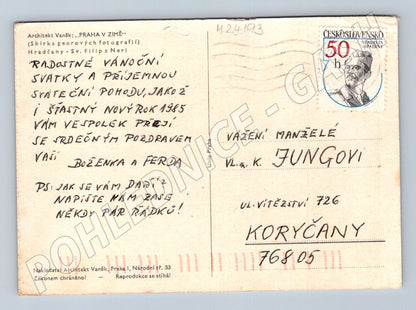 Architekt Vaněk: „PRAHA V ZIMĚ"
(Sbírka genrových fotografií)
Hradčany - Sv. Filip z Neri
RADOSTNÉ VÁNOČNÍ
SVÁTKY A PŘÍJEMNOU
SVÁTEČNÍ POHODU, JAKOŽ
I ŠŤASTNÝ NOVÝ ROK 1985
VÁM VESPOLEK PŘEJÍ
SE SRDEČNÝM POZDRAVEM
VAŠI
BOŽENKA A FERDA
PS: JAK SE VÁM DAŘÍ?
NAPIŠTE NÁM ZASE
NĚKDY PÁR ŘÁDKŮ!
Nakladatel Architekt Vaněk, Praha I, Národní tř. 33
Zákonem chráněno! — Reprodukce se stíhá!
ČESKOSLOVENSKO
50
h
VÁŽENÍ MANŽELÉ
VL. a K. JUNGOVI
UL. VÍTĚZSTVÍ 726
KORYČANY
768 05
POHLEDNICE -